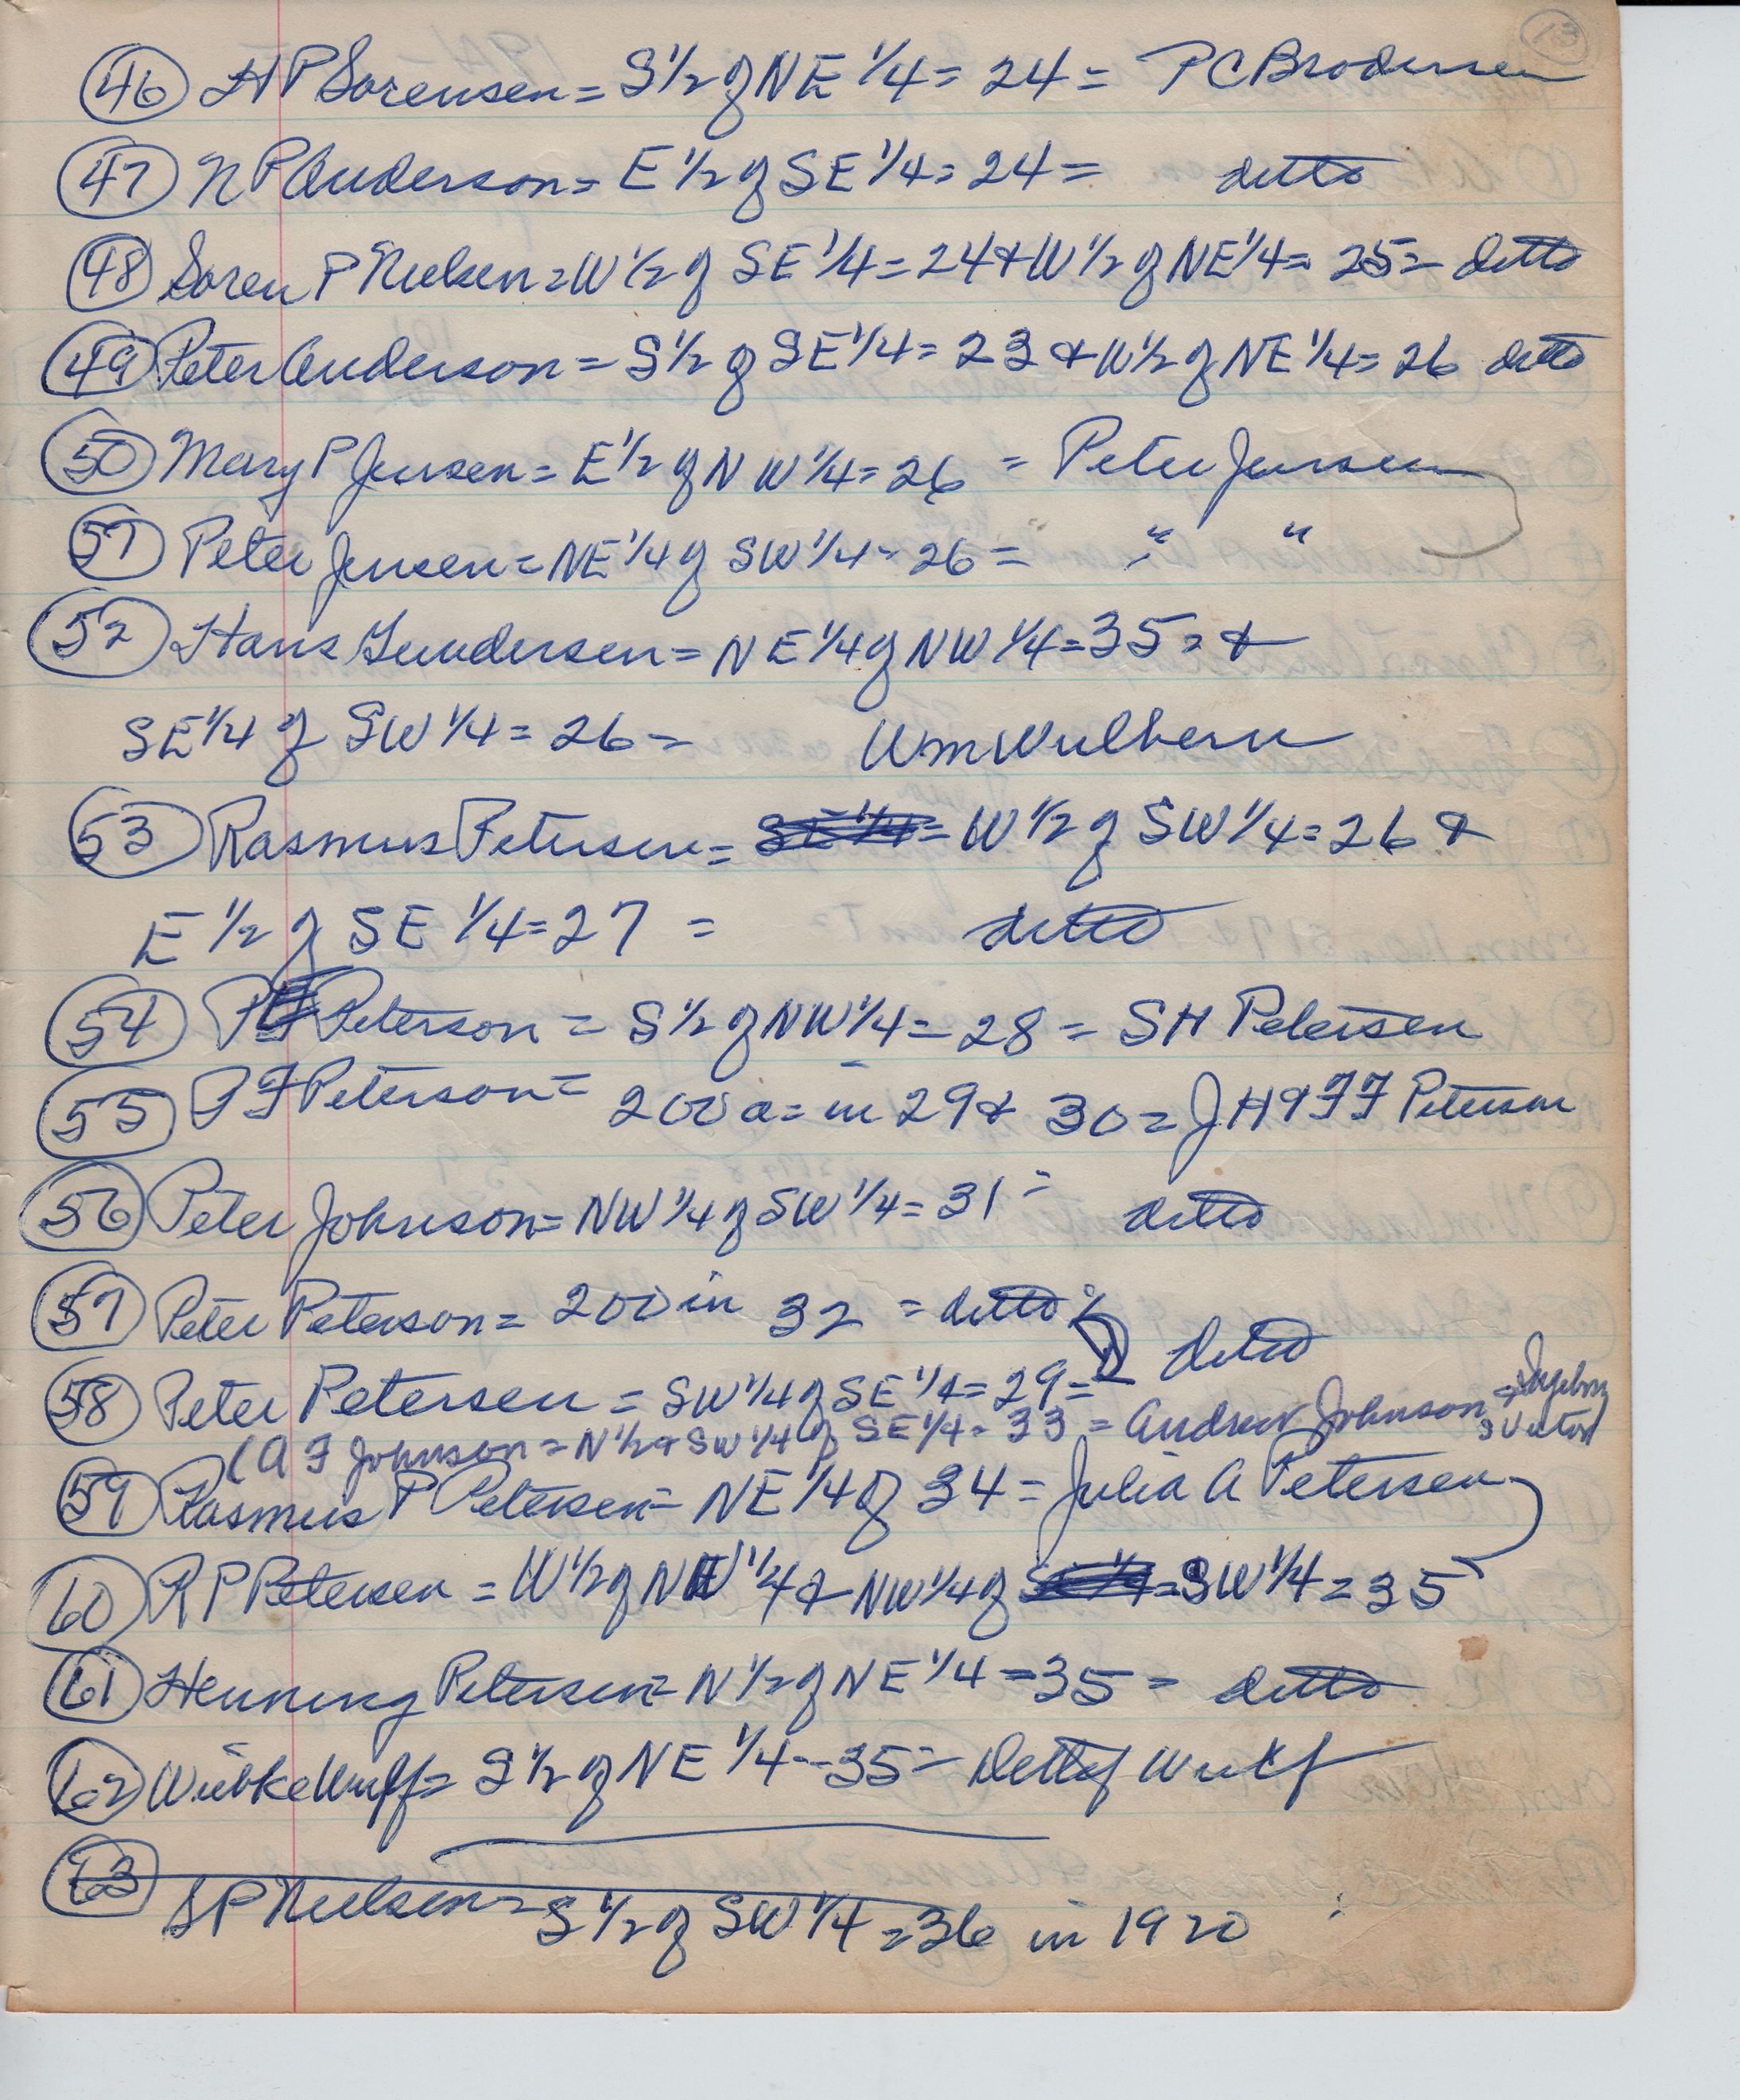 13
46 H P Sorensen = S 1/2 of NE 1/4 = 24 = P C Brodersen
47 N P Anderson = E 1/2 of SE 1/4 = 24 = ditto
48 Soren P Nielsen = W 1/2 of SE 1/4 = 24 & W 1/2 of NE 1/4 = 25 = ditto
49 Peter Anderson = S 1/2 of SE 1/4 = 23 & W 1/2 of NE 1/4 = 26 ditto
50 Mary P Jensen = E 1/2 of NW 1/4 = 26 = Peter Jensen
51 Peter Jensen = NE 1/4 of SW 1/4 = 26 = " "
52 Hans Gundersen = NE 1/4 of NW 1/4 = 35 = &
SE 1/4 of SW 1/4 = 26 = Wm Wulbern
53 Rasmus Petersen = W 1/2 of SW 1/4 = 26 &
E 1/2 of SE 1/4 = 27 = ditto
54 P Peterson = S 1/2 of NW 1/4 = 28 = S H Petersen
55 F Peterson = 200 a = in 29 & 30 = J H & F F Peterson
56 Peter Johnson = NW 1/4 of SW 1/4 = 31 = ditto
57 Peter Peterson = 200 in 32 = ditto
58 Peter Petersen = SW 1/4 of SE 1/4 = 29 = ditto
(A F Johnson = N 1/2 & SW 1/4 of SE 1/4 = 33 = Andrew Johnson = Ingeborg & Victor
59 Rasmus P Petersen = NE 1/4 of 34 = Julia A Petersen
60 R P Petersen = W 1/2 of NW 1/4 & NW 1/4 of SW 1/4 = 35
61 Henning Petersen = N 1/2 of NE 1/4 = 35 = ditto
62 Wiebke Wulff = S 1/2 of NE 1/4 - 35 = Detlef Wulf
63 S P Nielsen = S 1/2 of SW 1/4 = 36 in 1920